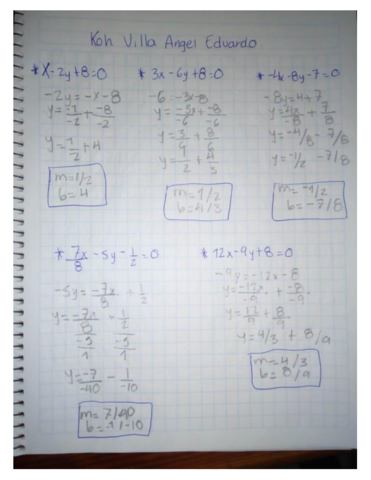 Koh Villa Angel Eduardo
* x-2y+8=0
-2y=-x-8
y=-1/-2 + -8/-2
y=1/2+4
m=1/2
b=4
* 3x-6y+8=0
-6=-3x-8
y=-3x/-6 + -8/-6
y=3/6 + 8/6
y=1/2 + 4/3
m=1/2
b=4/3
* -4x-8y-7=0
-8y=4+7
y=4x/-8 + 7/8
y=-4/8 -7/8
y=-1/2 -7/8
m=-1/2
b=-7/8
* 7x/8 -5y -1/2=0
-5y=-7x/8 + 1/2
y=-7x/8/-5/1 + 1/2/-5/1
y=-7/-40 - 1/-10
m=7/40
* 12x-9y+8=0
-9y=-12x-8
y=-12x/-9 + -8/-9
y=12/9 + 8/9
y=4/3 + 8/9
m=4/3
b=8/9